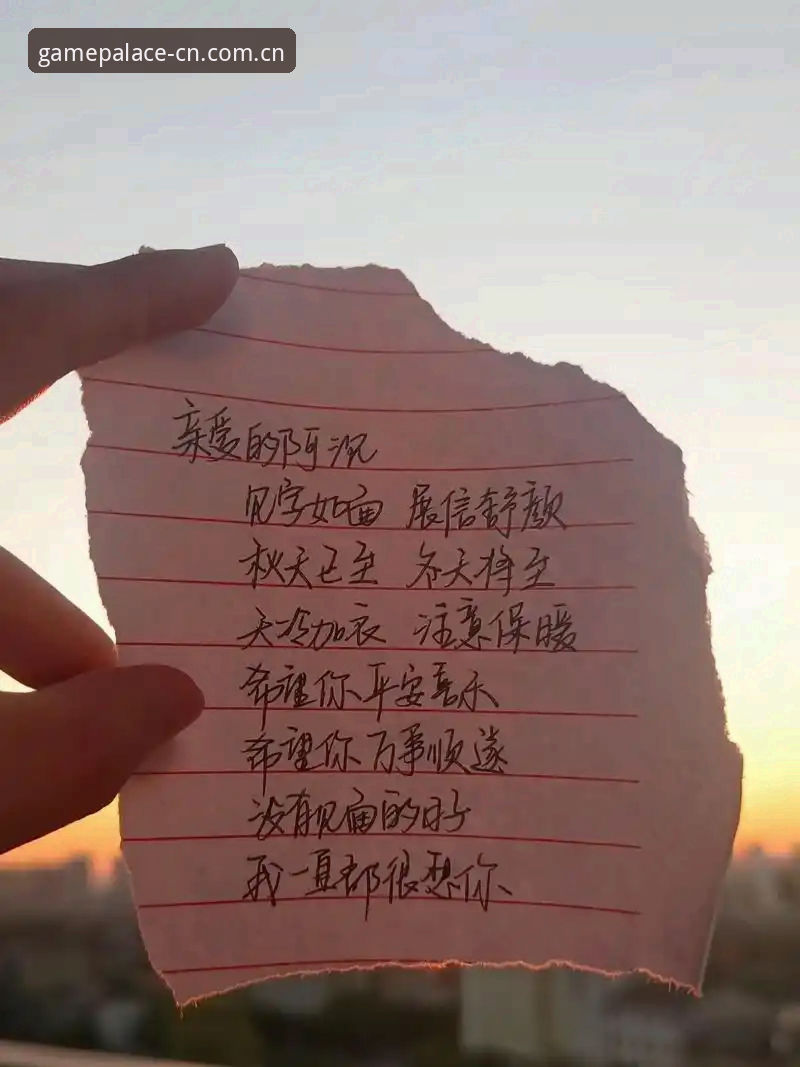 gamepalace-cn.com.cn
亲爱的阿沉
见字如面 展信舒颜
秋天已至 冬天将至
天冷加衣 注意保暖
希望你平安喜乐
希望你万事顺遂
没有见面的日子
我一直都很想你